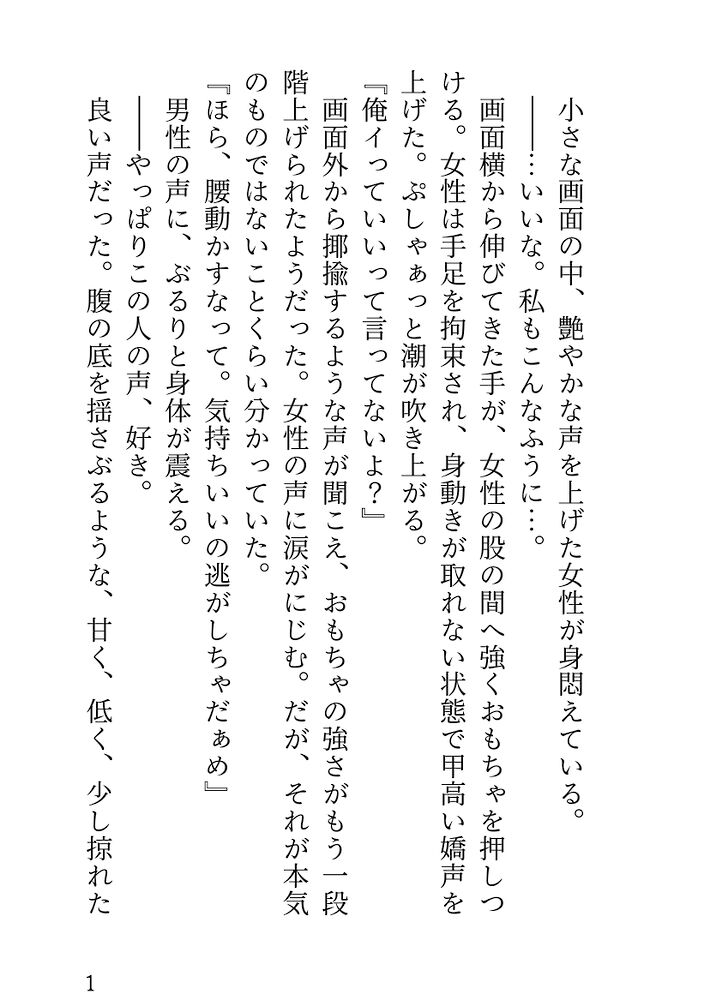 小さな画面の中、艶やかな声を上げた女性が身悶えている。
――…いいな。私もこんなふうに…。
画面横から伸びてきた手が、女性の股の間へ強くおもちゃを押しつ
ける。女性は手足を拘束され、身動きが取れない状態で甲高い嬌声を
上げた。ぷしゃぁっと潮が吹き上がる。
『俺イっていいって言ってないよ？』
画面外から揶揄するような声が聞こえ、おもちゃの強さがもう一段
階上げられたようだった。女性の声に涙がにじむ。だが、それが本気
のものではないことくらい分かっていた。
『ほら、腰動かすなって。気持ちいいの逃がしちゃだぁめ』
男性の声に、ぶるりと身体が震える。
――やっぱりこの人の声、好き。
良い声だった。腹の底を揺さぶるような、甘く、低く、少し掠れた
1